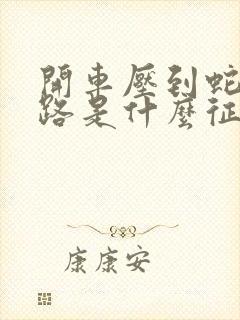 開車壓到蛇
路是什麼征
康康安